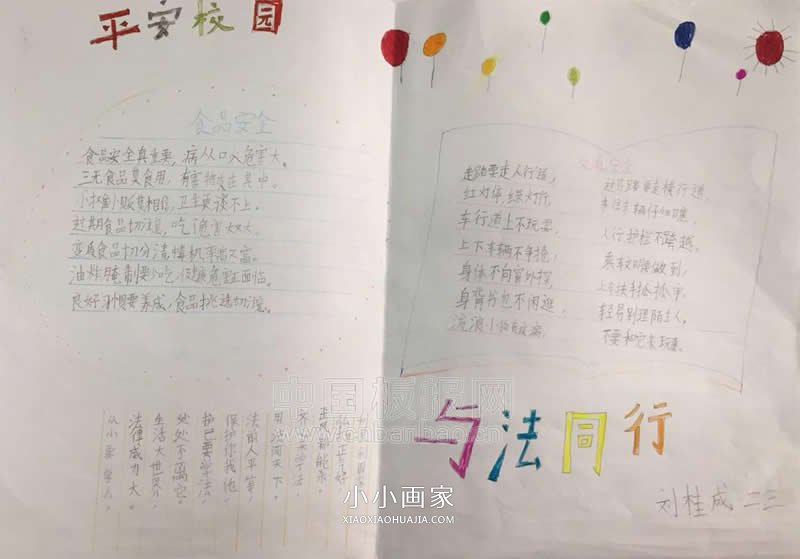 平安校园
食品安全
食品安全真重要，病从口入危害大。
三无食品莫食用，有害物质在其中。
小摊小贩莫相信，卫生莫谈不上。
过期食品切注意，吃了危害大又大。
变质食品切分清，
油炸腌制要少吃，健康危害正面临。
良好习惯要养成，食品挑选切注意。
交通安全
走路要走人行道，
红灯停，绿灯行，
车行道上不玩耍，
上下车辆不争抢，
身体不向窗外探，
身背书包不闲逛，
流浪小狗有疾病，
过马路要走横行道，
车辆仔细瞧，
人行护栏不跨越。
乘车要做到，
上车扶手
轻易别理陌生人，
不要和它来玩耍。
与法同行
刘桂成 二三
弘扬正气好
法前人平等，
保护你我他，
护己要学法，
处处不离它，
生活大世界，
法律成力大，
从小要学法，
中国板报网
www.nbanbao.cn
小小画家
XIAOXIAOHUAJIA.COM